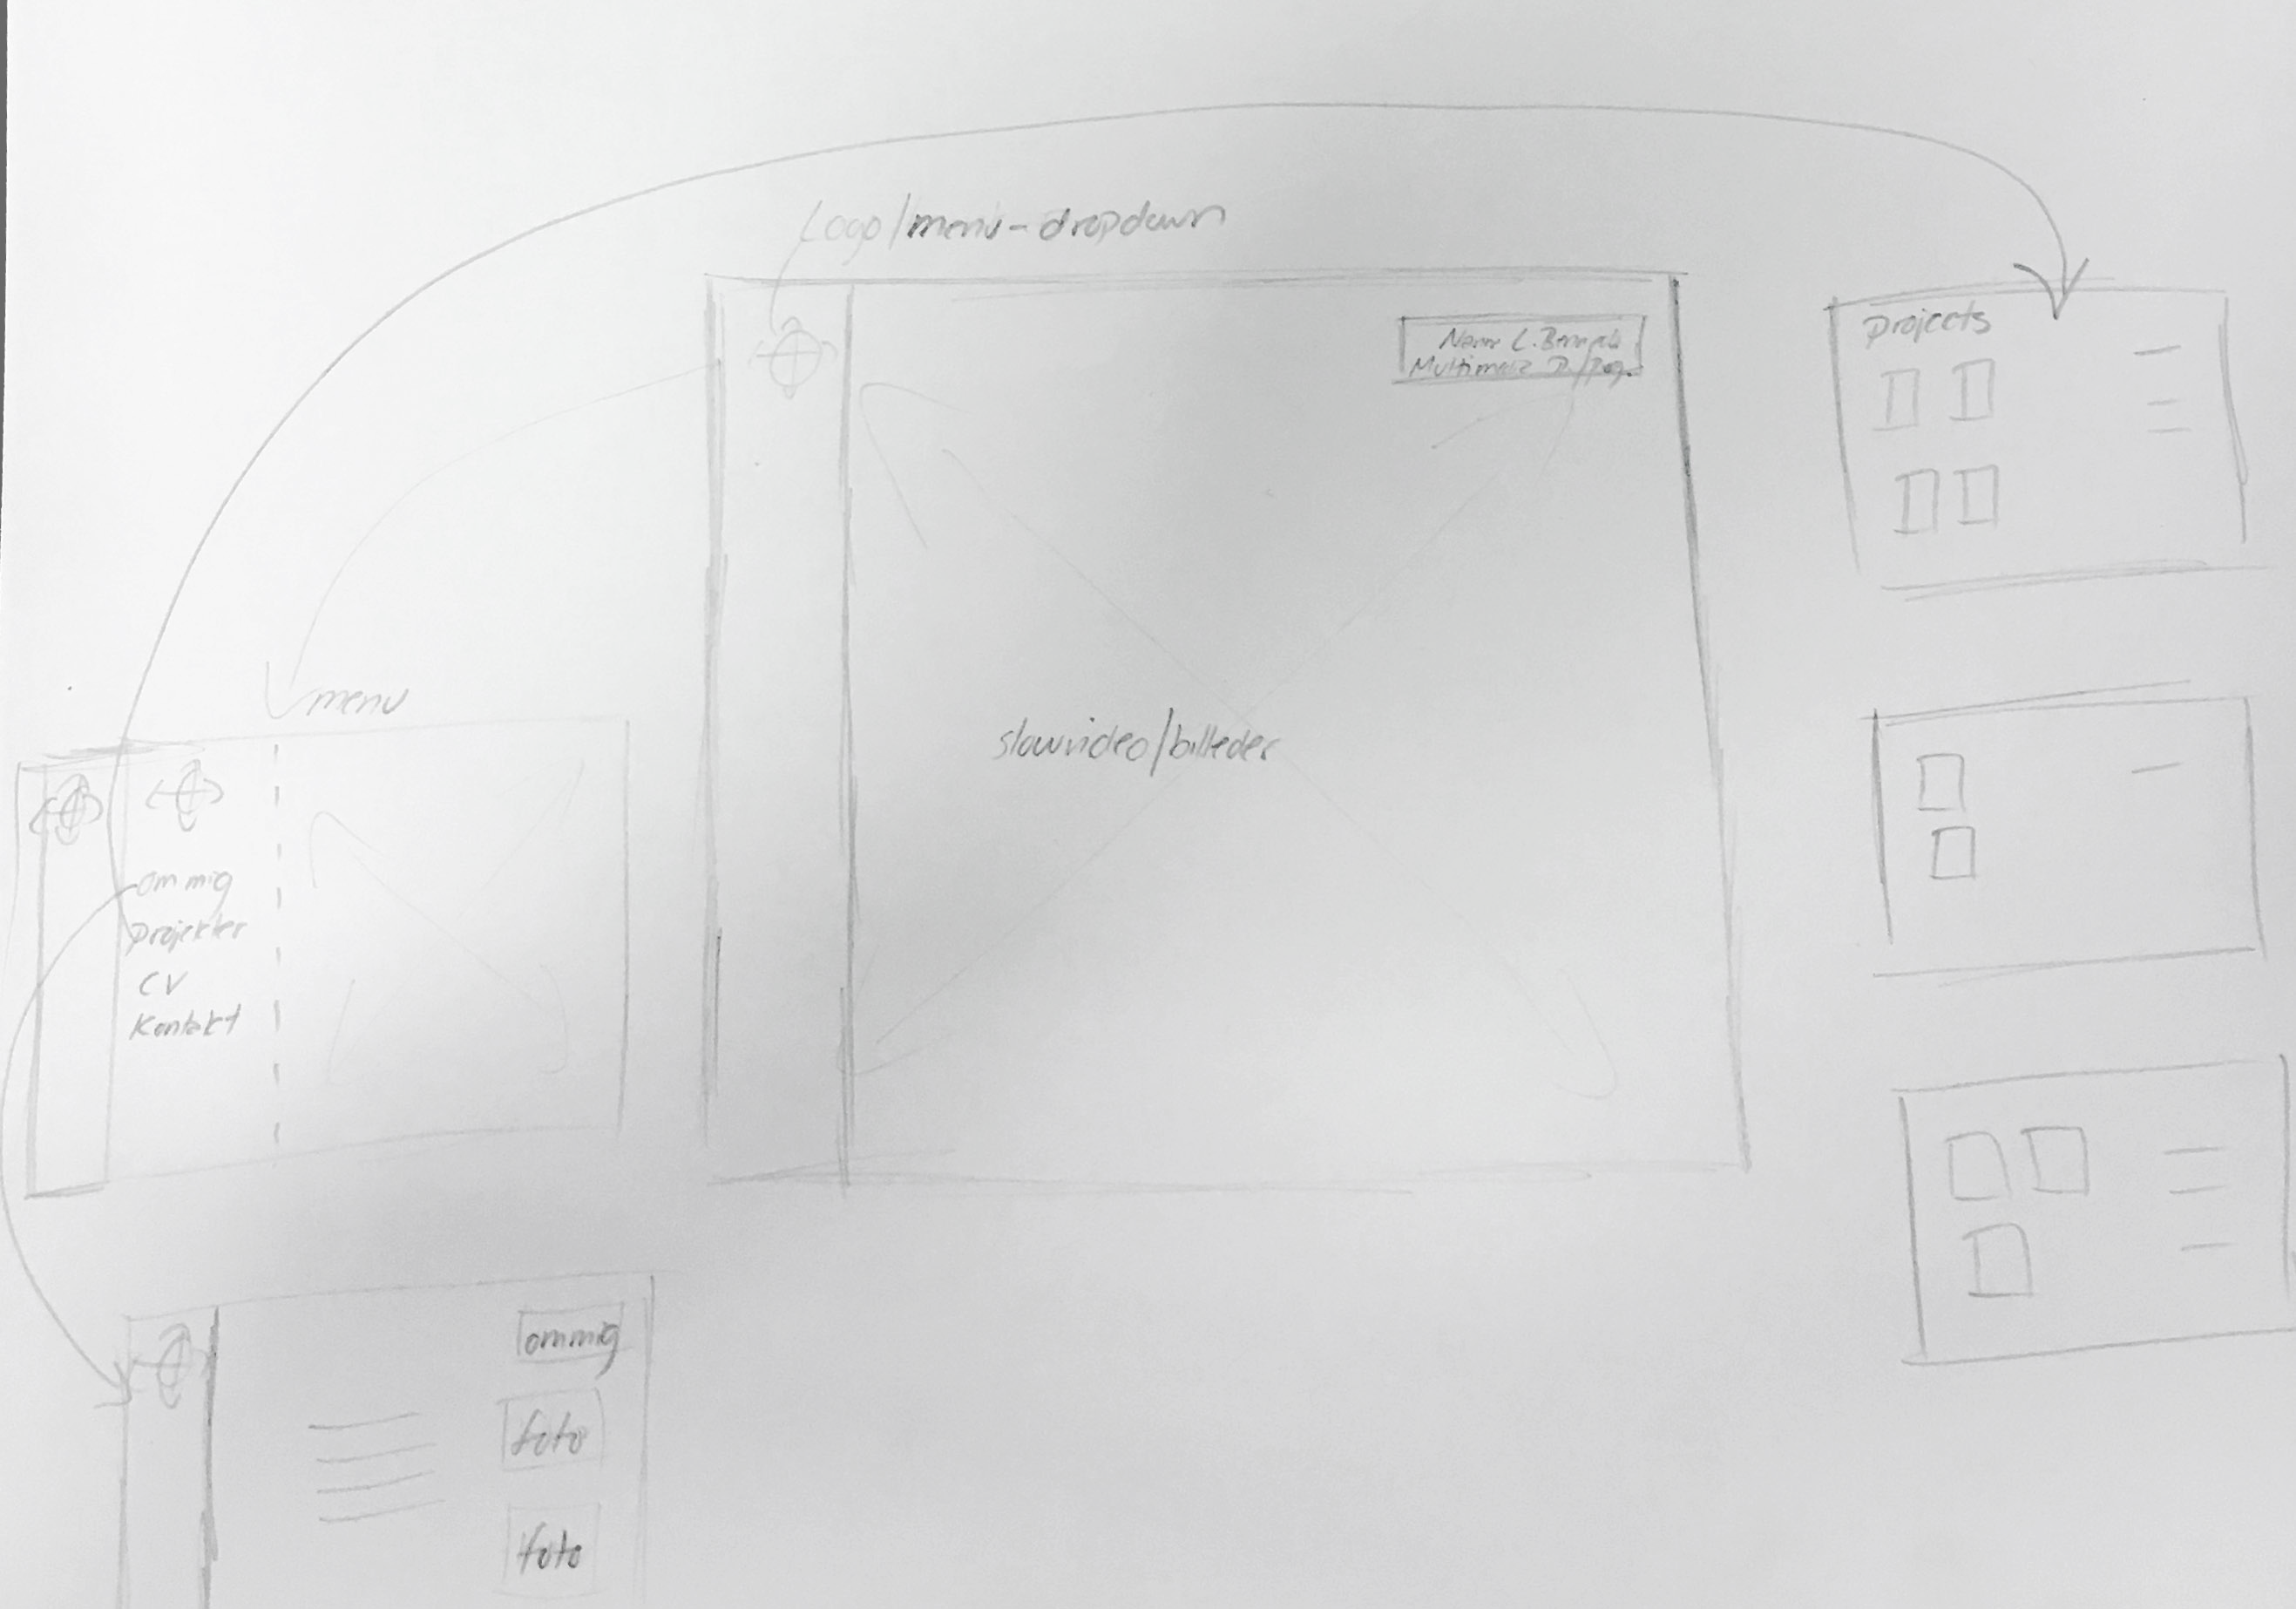 Logo/menu-dropdown
Multimedie
slowvideo/billeder
Projects
menu
om mig
Projekter
CV
Kontakt
om mig
foto
foto